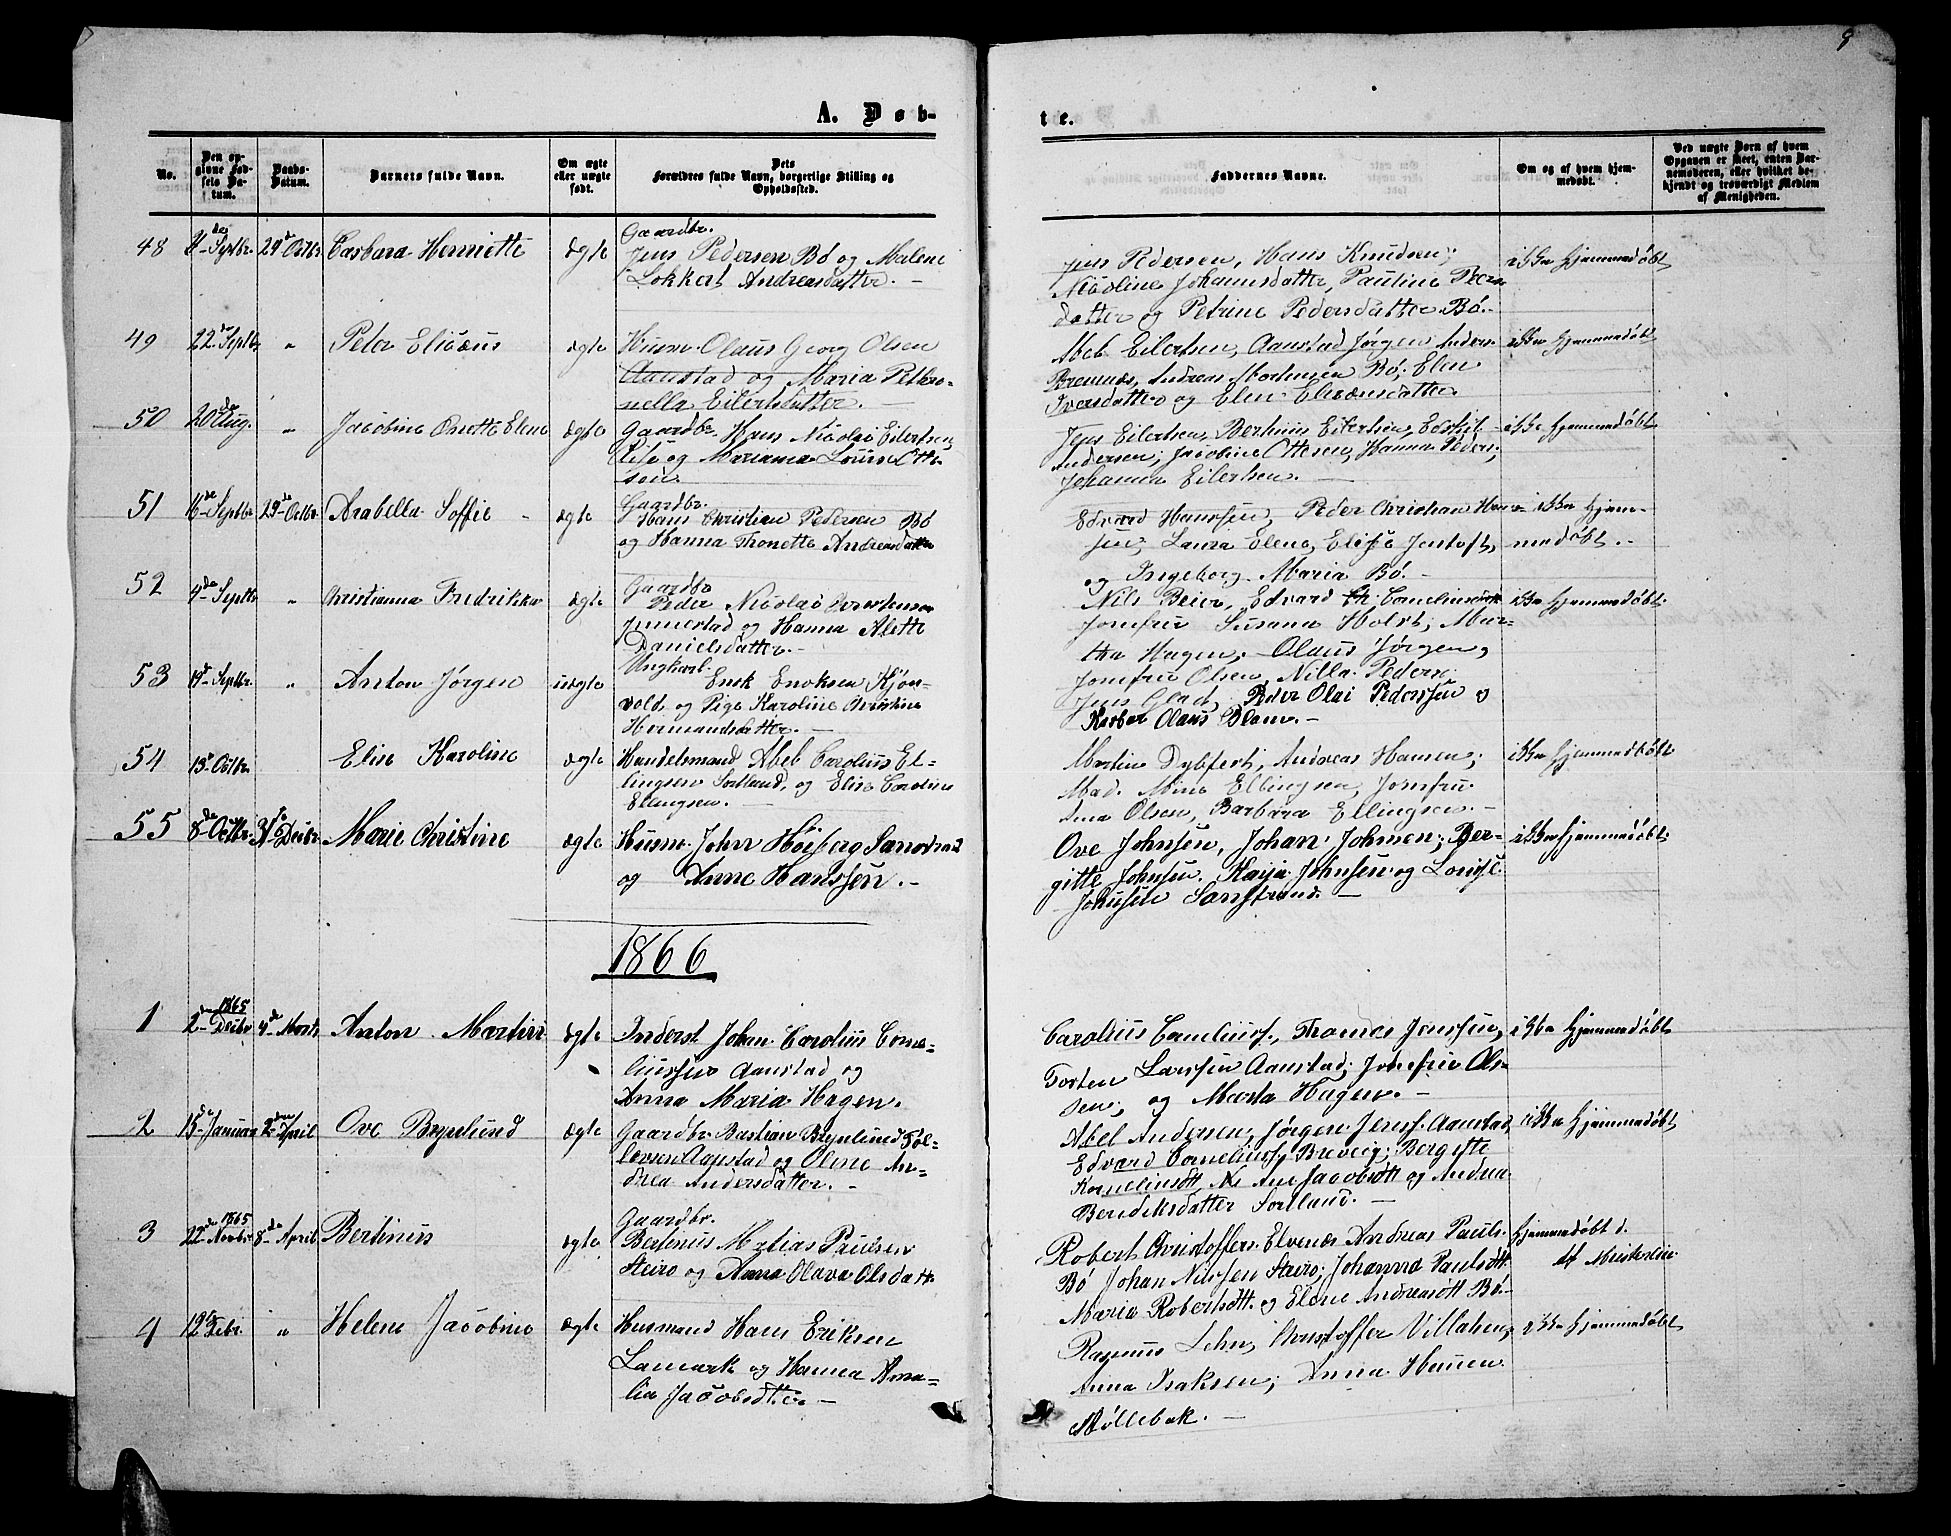 8
A. Døb-
te.
No.
Den op-
givne Fød-
sels Da-
tum.
Daabs-
Datum.
Barnets fulde Navn.
Om ægte
eller uægte
født.
Dets
Forældres fulde Navn, borgerlige Stilling og
Opholdssted.
Faddernes Navne.
Om og af hvem hjem-
medøbt.
Ved uægte Børn af hvem
Opgaven er skeet, enten Bar-
nemoderen, eller hvilket be-
kjendt og troværdigt Medlem
af Menigheden.
48 Septbr. 29de Octbr. Barbara Henriette ægte
Gaardbr.
Jens Pedersen Bø og Malene
Lokkert Andreasdatter. -
Jens Pedersen, Hans Knudsen,
Nicoline Johannsdatter, Pauline Peer
datter og Petrine Pedersdatter Bø. -
ikke hjemmedøbt
49 22de Septbr. " Peter Elisæus ægte
Husm. Olaus Georg Olsen
Aanstad og Maria Petro-
nella Eilertsdatter. -
Abel Eilertsen, Aanstad Jørgen Anders.
Bremnæs, Andreas Mortensen Bø; Elen
Iversdatter og Elen Elisæusdatter
ikke hjemmedøbt
50 20de Aug. " Jacobine Elene ægte
Gaardbr. Hans Nicolai Eilertsen
og Mariama Louise Otte-
sen.
Jens Eilertsen, Bertinus Eilertsen, Edskil
Andersen; Jacobine Ottesen, Hanna Peders;
Johanna Eilertsen. -
ikke hjemmedøbt
51 16de Septbr. 29de Octbr. Arabella Soffie - ægte
Gaardbr.
Hans Christian Pedersen Bø
og Hanna Tronette Andreasdatter
Edvard Hanssen, Peder Christian Hans-
sen, Laura Elene, Elise Jentoft,
og Ingeborg Maria Bø. -
ikke hjem-
medøbt. -
52 4de Septbr. " Christianna Fredrikka ægte
Gaardbr.
Peder Nicolai
Jennestad og Hanna Alette
Danielsdatter. -
Nils Beier, Edvard Corneliussen
Jomfru Susana Holst, Mar-
tha Hagen, Olaus Jørgen,
ikke hjemmedøbt.
53 19d Septbr. " Anton Jørgen uægte
Ungkarl.
Enok Enoksen Kjør-
vold, og Pige Karoline Christine
Hermansdatter. -
Jomfru Olsen, Nilla Peders.
Jens Glad, Peder Olai Pederssen og
Olaus Blam. -
54 13 Octbr. Elise Karoline ægte
Handelsmand Abel Carolius El-
lingsen Sortland, og Elise Caroline
Ellingsen. -
Martin Dybfert; Andreas Hansen;
Mad. Mine Ellingsen, Jomfru
Ana Olsen, Barbara Ellingsen. -
ikke hjemmedøbt
55 8de Octbr. 31te Decbr. Marie Christine ægte
Husm. John Høiberg Sandnes
og Anne Hanssen. -
Ove Johnsen, Johan Johnsen; Ber-
gitte Johnsen. Kaija Johnsen og Lovise
Johnsen Sanstrand. -
ikke hjemmedøbt.
1866
1 1865 2den Decbr. 4de Marts Anton Martin ægte
Inderst Johan Carolius Corne-
liussen Aanstad og
Anna Maria Hagen.
Carolius Corneliuss., Thomas Jenssen,
Torsten Larssen Aanstad, Jomfrue Ol-
sen, og Marta Hagen. -
ikke hjemmedøbt
2 13de Januar 2den April Ove Brynlund ægte
Gaardbr. Bastian Brynlund Tol-
levsen Aanstad og Oline An-
drea Andersdatter. -
Abel Andersen, Jørgen Jenss. Aanstad
Edvard Corneliuss. Breveig; Bergitte
Korneliusdtt, Ane Jacobsdtt og Andrea
Benediksdatter Sortland. -
ikke hjemmedøbt
3 1865 22de Novbr. 8de April Bertinus ægte
Gaardbr.
Bertinus Matias Paulsen
Steiro og Anna Olava Olsdatt.
Robert Christoffers. Elvenæs Andreas Pauls.
Bø Johan Nilssen Steiro; Johanna Paulsdtt.
Maria Robertsdtt. og Elene Andreasdtt Bø. -
hjemmedøbt d.
4 12te Febr. " Helene Jacobine ægte
Husmand Hans Eriksen
Lamark og Hanna Ama-
lia Jacobsdtter. -
Rasmus Lehn, Christoffer Villahen,
Anna Isaksen; Anna Hansen
Møllebak. -
ikke hjemmedøbt